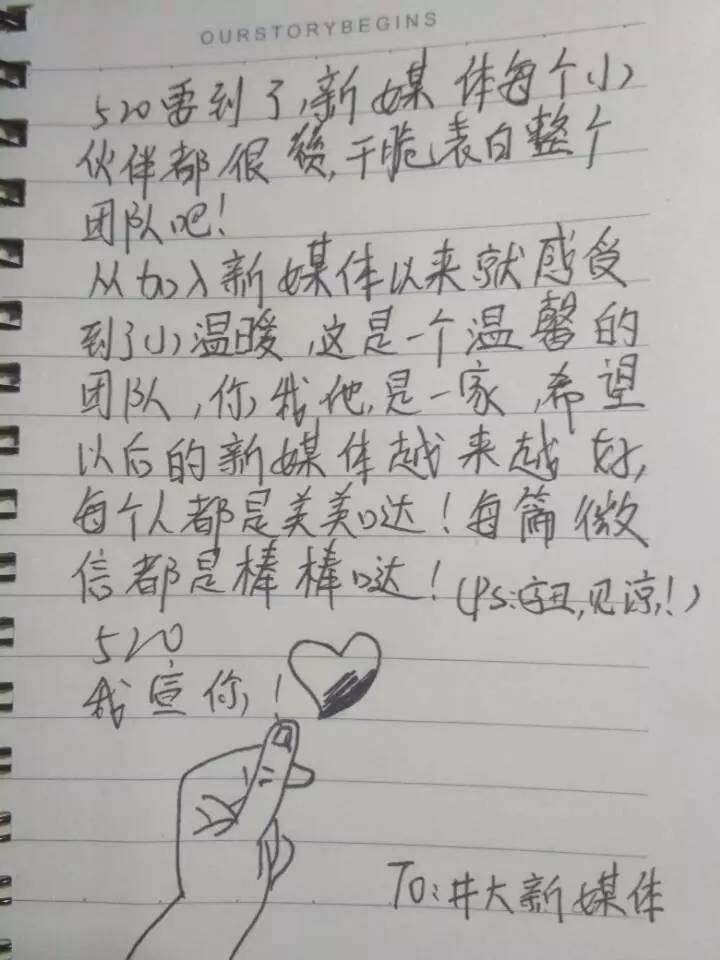 OURSTORYBEGINS
520要到了,新媒体每个小
伙伴都很赞,干脆表白整个
团队吧!
从加入新媒体以来就感受
到了小温暖,这是一个温馨的
团队,你,我,他,是一家,希望
以后的新媒体越来越好,
每个人都是美美哒!每篇微
信都是棒棒哒!(Ps:字丑,见谅!)
520
我宣你!
TO:井大新媒体